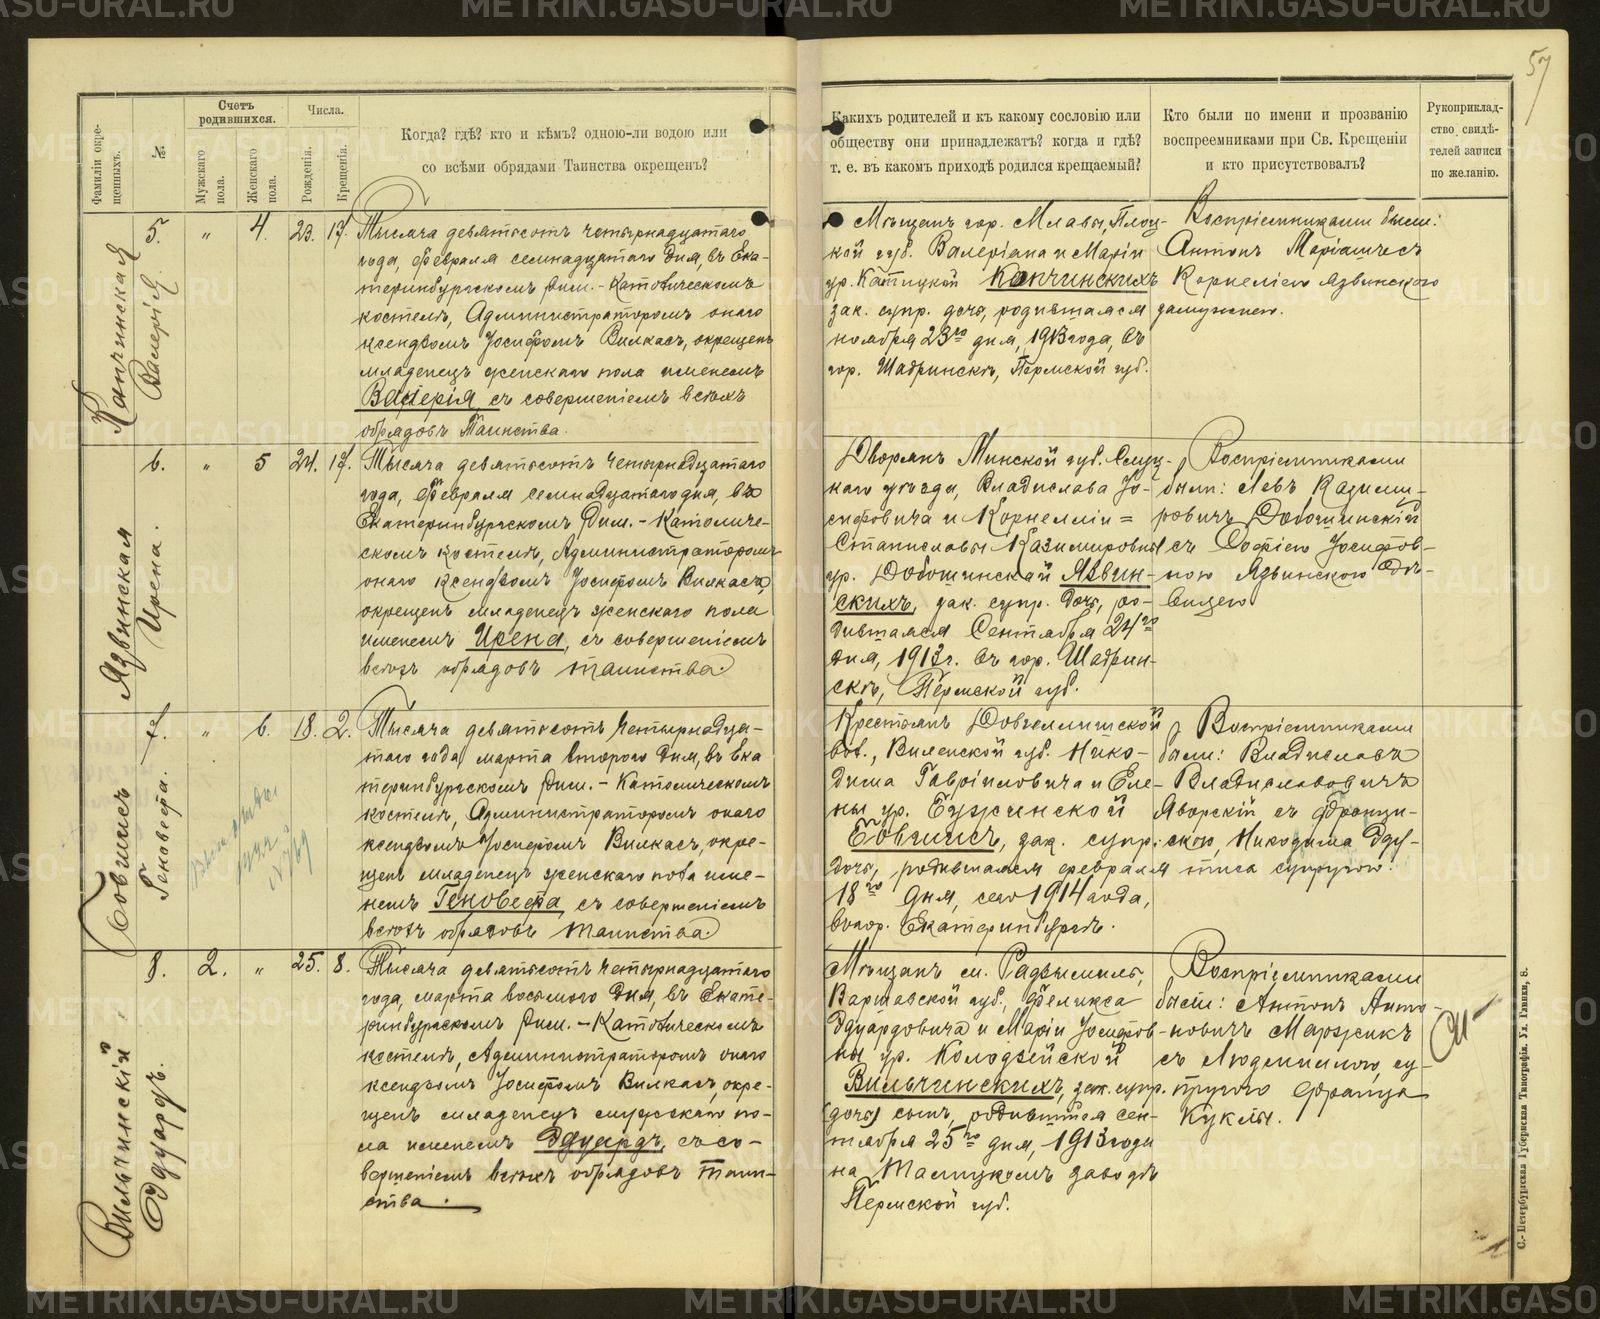 METRIKI.GASO-URAL.RU
57
Фамиліи окре-
щенныхъ.
№
Счетъ
родившихся.
Мужскаго
пола.
Женскаго
пола.
Числа.
Рожденія.
Крещенія.
Когда? гдѣ? кто и кѣмъ? одною-ли водою или
со всѣми обрядами Таинства окрещенъ?
Какихъ родителей и къ какому сословію или
обществу они принадлежатъ? когда и гдѣ?
т. е. въ какомъ приходѣ родился крещаемый?
Кто были по имени и прозванію
воспреемниками при Св. Крещеніи
и кто присутствовалъ?
Рукоприклад-
ство свидѣ-
телей записи
по желанію.
Капчинская
Валерія
5. " 4. 23. 17.
Тысяча девятьсотъ четырнадцатаго
года, февраля семнадцатаго дня, въ Ека-
теринбургскомъ Рим.-Католическомъ
костелѣ, Администраторомъ онаго
ксендзомъ Іосифомъ Вилкасъ, окрещенъ
младенецъ женскаго пола именемъ
Валерія, съ совершеніемъ всѣхъ
обрядовъ Таинства.
Мѣщанъ гор. Млавы, Плоц-
кой губ. Валеріана и Маріи
ур. Капчинскихъ
зак. супр. дочь, родившаяся
ноября 23го дня, 1913 года, въ
гор. Шадринскѣ, Пермской губ.
Воспріемниками были:
Антонъ
Корнеліею Язвинскою
замужнею.
Язвинская
Ирена.
6. " 5 24. 17.
Тысяча девятьсотъ четырнадцатаго
года, февраля семнадцатаго дня, въ
Екатеринбургскомъ Рим.-Католиче-
скомъ костелѣ, Администраторомъ
онаго ксендзомъ Іосифомъ Вилкасъ,
окрещенъ младенецъ женскаго пола
именемъ Ирена, съ совершеніемъ
всѣхъ обрядовъ таинства.
Дворянъ Минской губ. Слуц-
каго уѣзда, Владислава Іо-
сифовича и Корнелліи =
Станиславы Казимировны
ур. Добошинской Язвин-
скихъ, зак. супр. дочь, ро-
дившаяся Сентября 24го
дня, 1913 г. въ гор. Шадрин-
скѣ, Пермской губ.
Воспріемниками
были: Левъ Казими-
ровичъ Добошинскій
съ Софіею Іосифов-
ною Язвинскою дѣ-
вицею
Бовшисъ
Геновефа.
7. " 6. 18. 2.
Тысяча девятьсотъ четырнадца-
таго года, марта второго дня, въ Ека
теринбургскомъ Рим.-Католическомъ
костелѣ, Администраторомъ онаго
ксендзомъ Іосифомъ Вилкасъ, окре-
щенъ младенецъ женскаго пола име-
немъ Геновефа, съ совершеніемъ
всѣхъ обрядовъ таинства.
Крестьянъ
вол., Виленской губ. Нико-
дима Гавріиловича и Еле-
ны ур. Бужинской
Бовшисъ, зак. супр.
дочь, родившаяся февраля
18го дня, сего 1914 года,
въ гор. Екатеринбургѣ.
Воспріемниками
были: Владиславъ
Владиславовичъ
Яворскій съ Франци-
скою, Никодима
супругою.
Вильчинскій
Эдуардъ.
8. 2. " 25. 8.
Тысяча девятьсотъ четырнадцатаго
года, марта восьмого дня, въ Екате-
ринбургскомъ Рим.-Католическомъ
костелѣ, Администраторомъ онаго
ксендзомъ Іосифомъ Вилкасъ, окре-
щенъ младенецъ мужскаго по-
ла именемъ Эдуардъ, съ со-
вершеніемъ всѣхъ обрядовъ Таин-
ства.
Мѣщанъ м.
Варшавской губ., Феликса
Эдуардовича и Маріи Іосифов-
ны ур. Колодзейской
Вильчинскихъ, зак. супр.
(дочь) сынъ, родившійся сен-
тября 25го дня, 1913 года
на Талицкомъ заводѣ
Пермской губ.
Воспріемниками
были: Антонъ Анто-
новичъ
съ Людмилою, су-
пругою Франца
Куклы.
С.-Петербургская Губернская Типографія. Ул. Глинки, 8.
METRIKI.GASO-URAL.RU